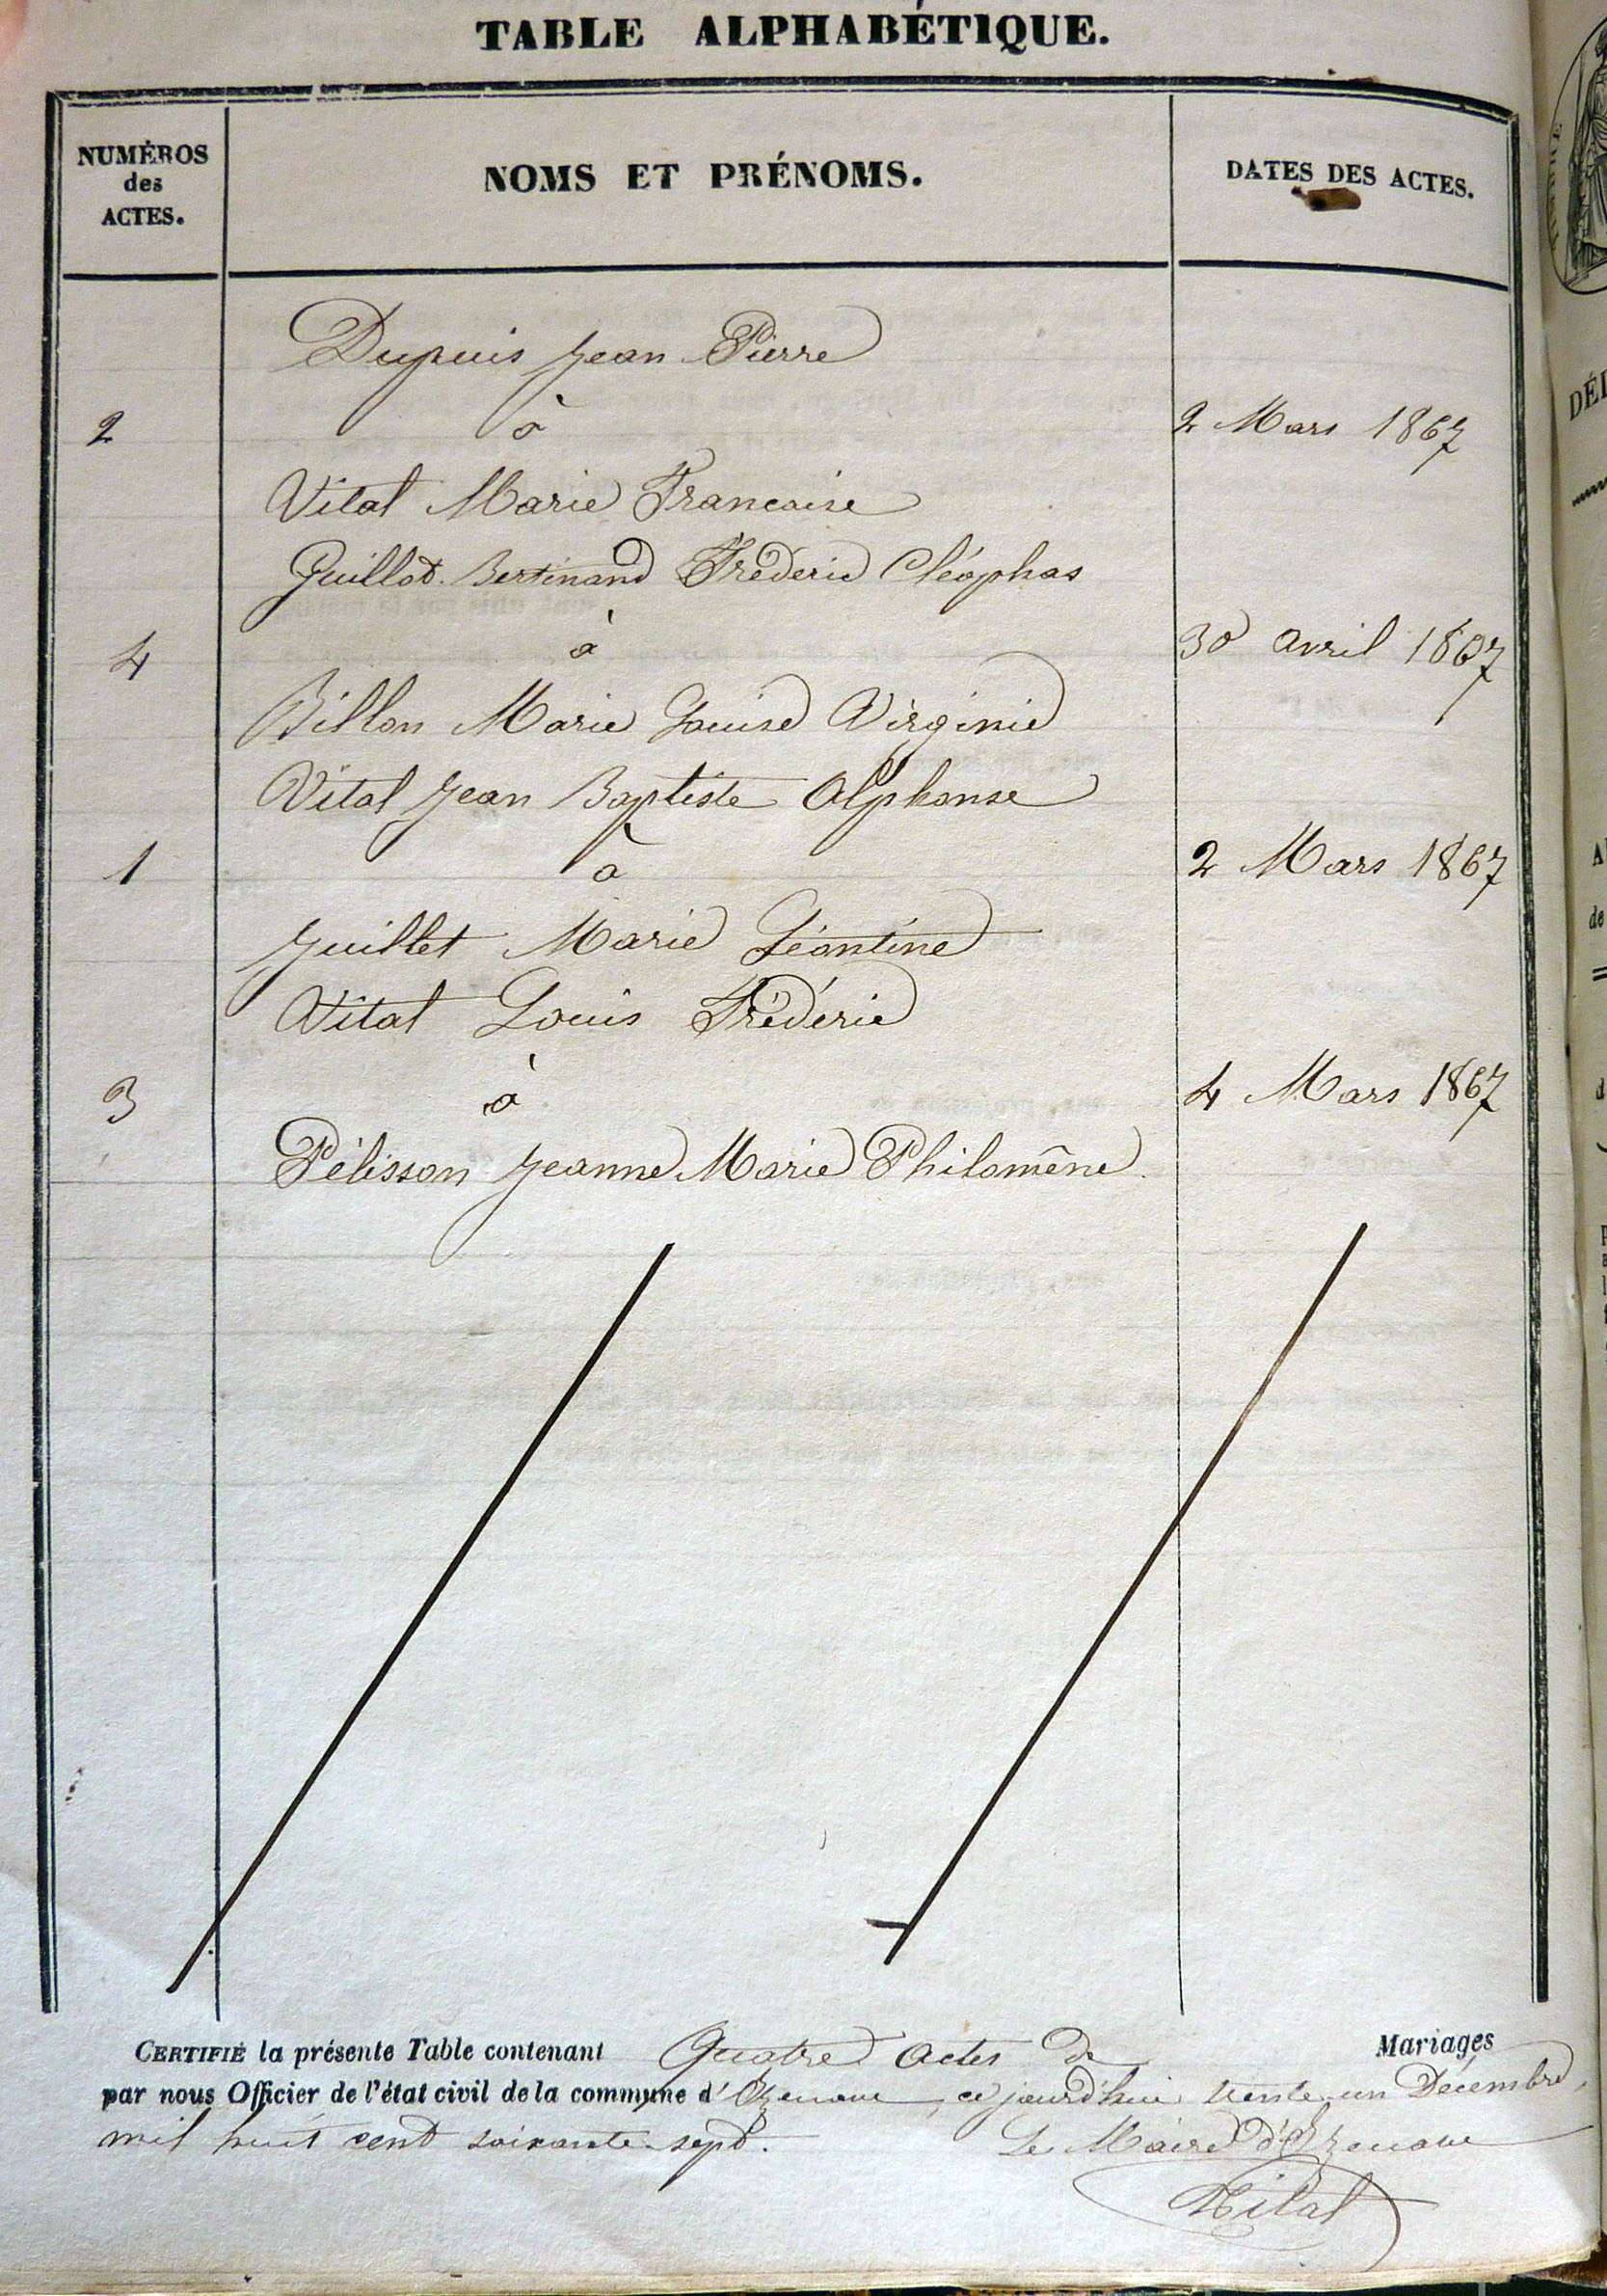 TABLE ALPHABÉTIQUE.
NUMÉROS
des
ACTES.
NOMS ET PRÉNOMS.
DATES DES ACTES.
Dupuis Jean Pierre
2 à 2 Mars 1867
Vital Marie Francoise
Guillot Bertinand Fréderic Cléophas
4 à 30 avril 1867
Billon Marie Louise Virginie
Vital Jean Baptiste Alphonse
1 à 2 Mars 1867
Juillet Marie Léontine
Vital Louis Frédéric
3 à 4 Mars 1867
Pélisson Jeanne Marie Philomêne
CERTIFIÉ la présente Table contenant Quatre Actes de Mariages
par nous Officier de l'état civil de la commune d' ce jourd'hui trente un Décembre
mil huit cent soixante-sept.
Le Maire
Vital
DÉ
de